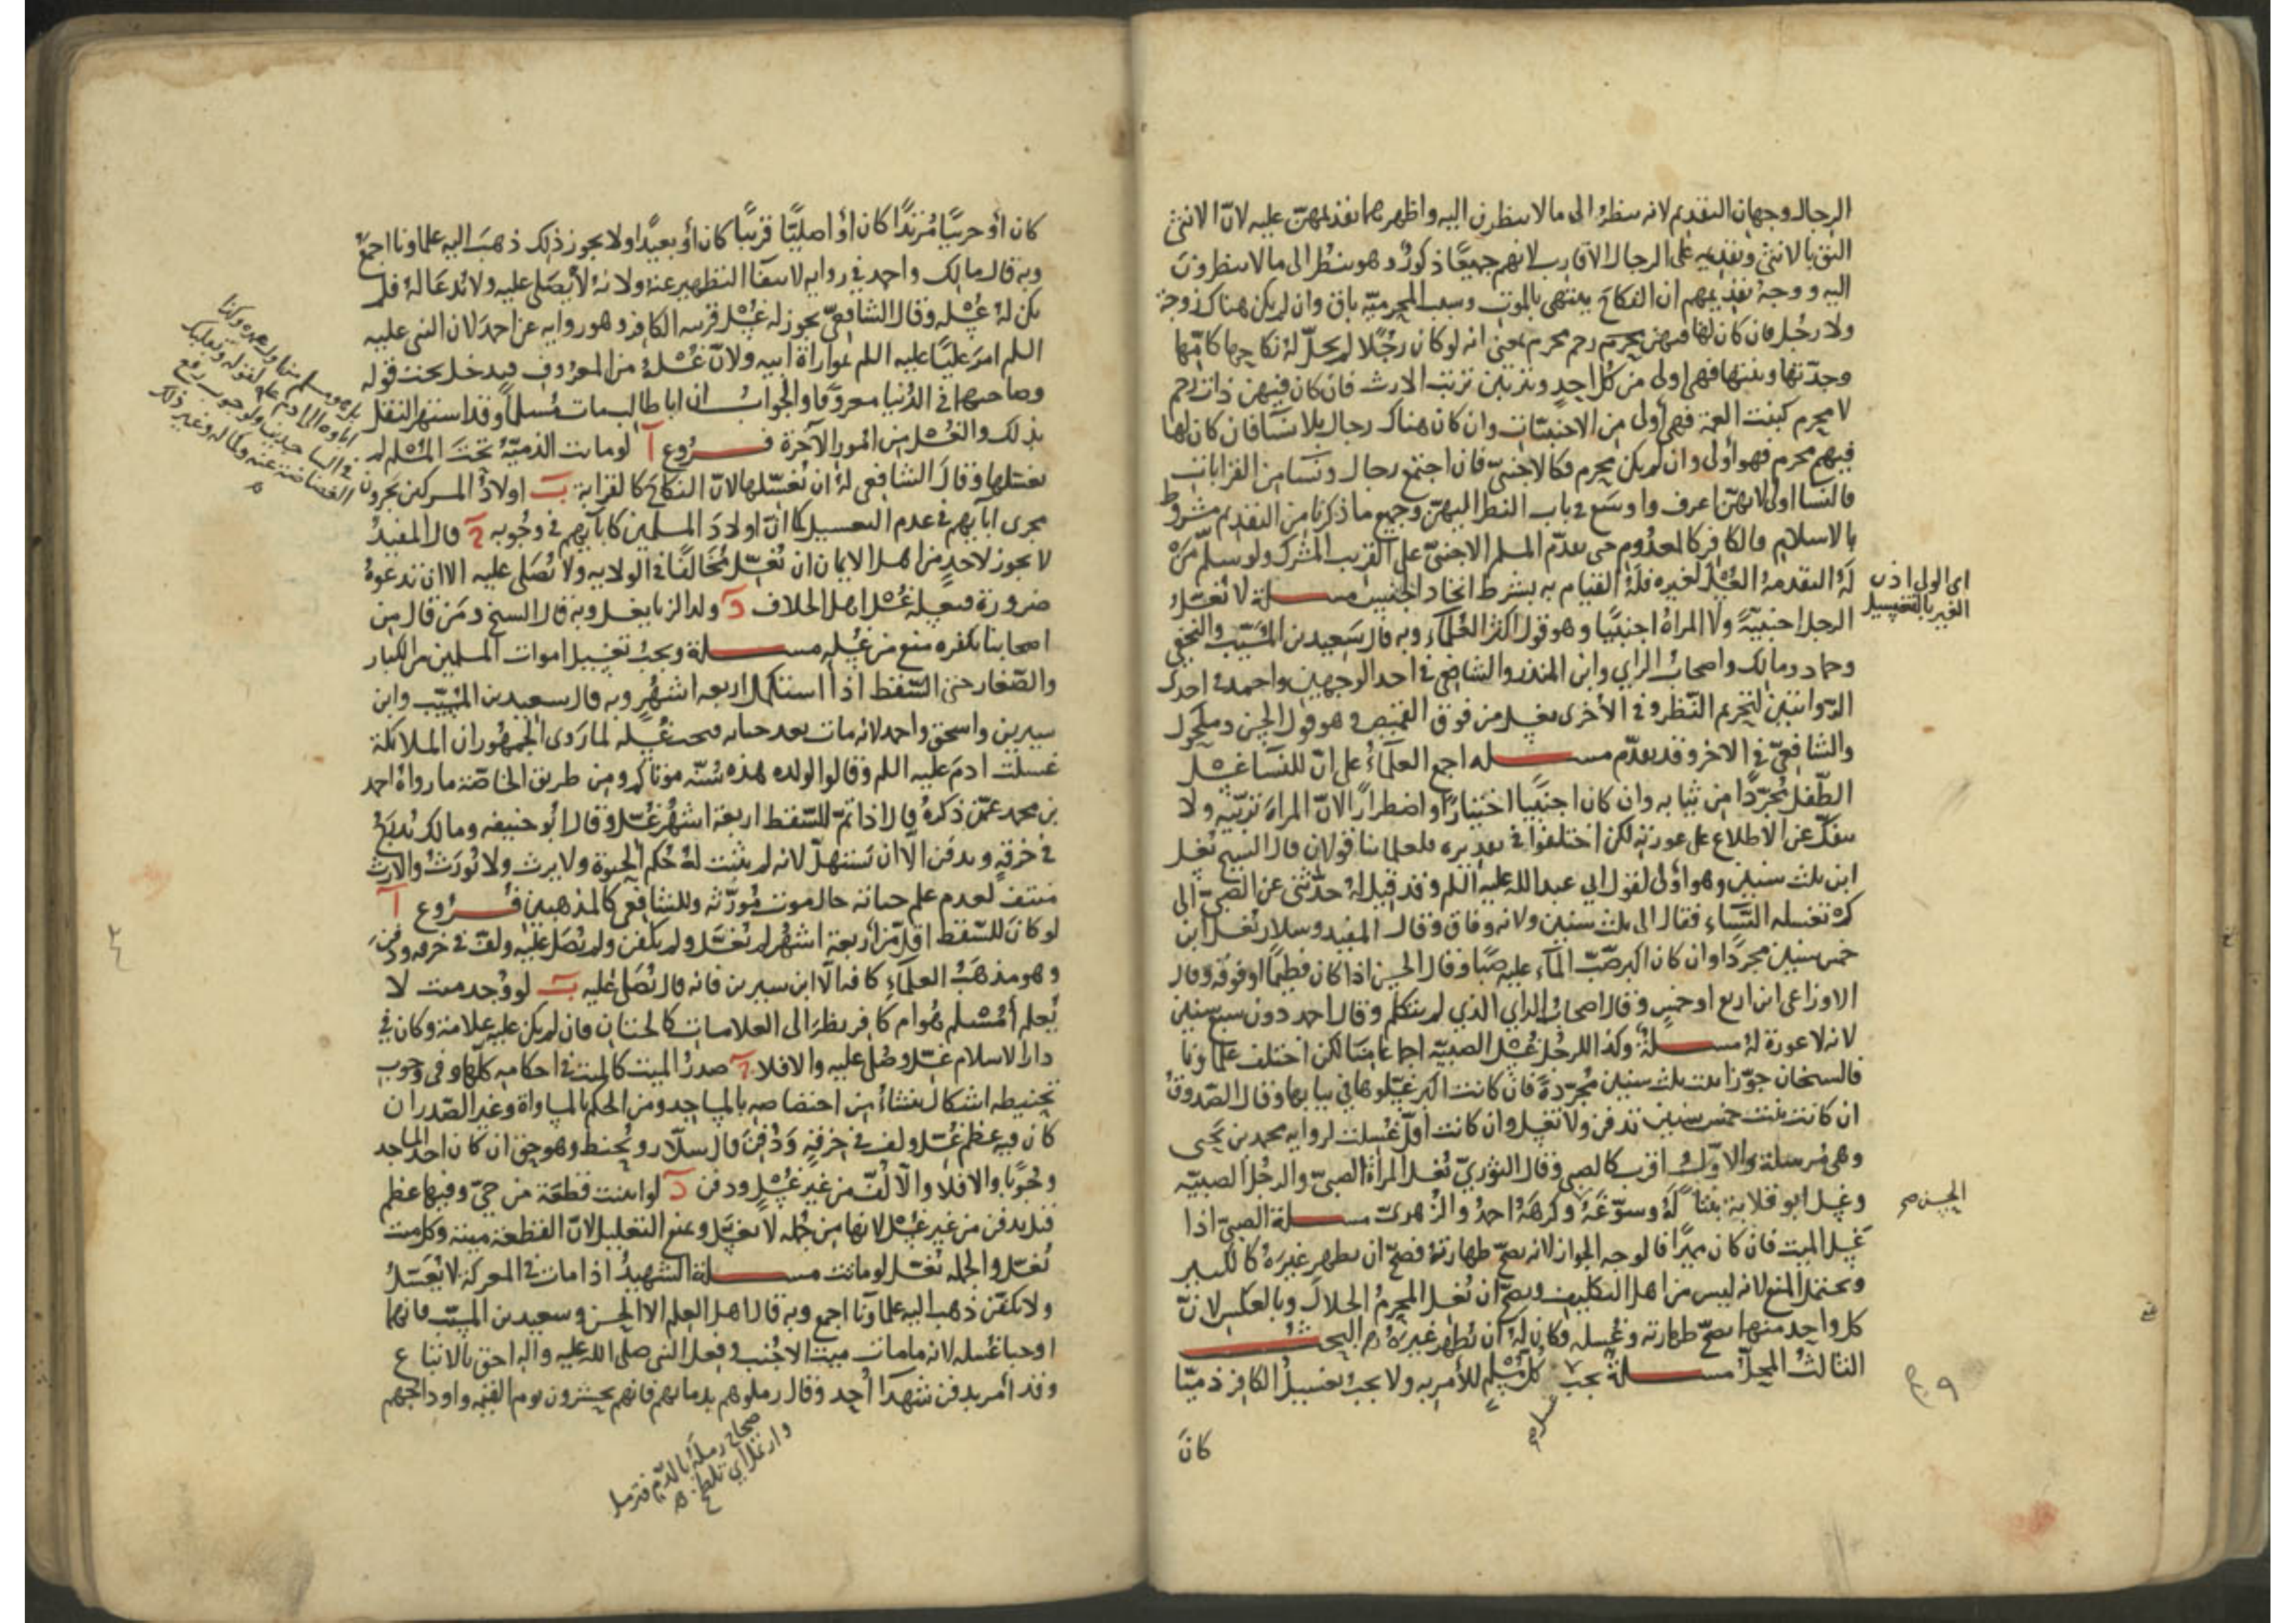 الرجال وجهان التقديم لانه ينظر الى ما لا ينظرن اليه واظهرهما تقديمهن عليه لانّ الانثى
اليق بالانثى وتقديمه على الرجال الاقارب لانهم جميعًا ذكور وهو ينظر الى ما لا ينظرون
اليه ووجه تقديمهم ان النكاح ينتهى بالموت وسبب المحرميّة باق وان لم يكن هناك زوجة
ولا رجل فان كان لها فيهن رحم محرم بمعنى انه لو كان رجلًا لم يحلّ له نكاحها كامّها
وجدّتها وبنتها فهى اولى من كل احدٍ وترتبن ترتب الارث فان كان فيهن ذات رحم
لا محرم كبنت العمة فهى أولى من الاجنبيّات وان كان هناك رجال بلا نسآ فان كان لها
فيهم محرم فهو أولى وان لم يكن محرم فكالاجنبىّ فان اجتمع رجال ونسآ من القرابات
فالنسا اولى لانهنّ اعرف واوسع فى باب النظر اليهنّ وجميع ما ذكرنا من التقديم مشروط
بالاسلام فالكافر كالمعدوم حى يقدّم المسلم الاجنبىّ على القريب المشرك ولو سلّم مَن
لهُ التقدمة الغسل لغيره فلهُ القيام به بشرط اتحاد الجنس مسـلة لا يُغسّل
الرجل اجنبيّةً ولا المرأة اجنبيًا وهو قول اكثر العلمآء وبه قال سعيد بن المسيّب والنخعى
وحماد ومالك واصحاب الراي وابن المنذر والشافعى فى احد الوجهين واحمد فى احدى
الروايتين لتحريم النّظر وفى الأخرى يغسل من فوق القميص وهو قول الحسن ومكحول
والشافعىّ فى الاخر وقد تقدّم مسـله اجمع العلمآء على انّ للنسآ غسل
الطّفل مجرّدًا من ثيابه وان كان اجنبيا اختيارًا واضطرارًا لانّ المراة تربّيه ولا
ينفكّ عن الاطلاع على عورته لكن اختلفوا فى تقديره فلعلمائنا قولان قال الشيخ يغسل
ابن ثلث سنين وهو أولى لقول ابى عبد الله عليه السلم وقد قيل لهُ حدّثنى عن الصبىّ الى
كم تغسله النسآء فقال الى ثلث سنين ولانه وفاق وقال المفيد وسلار تغسل ابن
خمس سنين مجردًا وان كان اكبر صُبّ المآء عليه صبًا وقال الحسن اذا كان فطيمًا اوفوقه وقال
الاوزاعى ابن اربع او خمس وقال اصحاب الراي الذي لم يتكلم وقال احمد دون سبع سنين
لانه لا عورة لهُ مسـلة وكذا للرجل غسل الصبيّة اجماعا منا لكن اختلف علماونا
فالشيخان جوّزا بنت ثلث سنين مجرّدة فان كانت اكبر غسّلوها فى ثيابها وقال الصّدوق
ان كانت بنت خمس سنين تدفن ولا تغسل وان كانت اقلّ غسلت لرواية محمد بن يحيى
وهى مرسلة والاوّل اقرب كالصبى وقال الثوريّ تغسل المرأة الصبىّ والرجل الصبيّه
وغسل ابو قلابة بنتًا لهُ وسوّغهُ وكرههُ احمدُ والزهرى مسـلة الصبىّ اذا
غسل الميت فان كان مميزًا فالوجه الجواز لانه يصحّ طهارته فصحّ ان يطهر غيره كالكبير
ويحتمل المنع لانه ليس من اهل التكليف ويصحّ ان يغسل المحرمُ الحلال وبالعكس لانّ
كل واحد منهما تصحّ طهارته وغسله فكان لهُ ان يطهر غيرهُ البحـث
الثالث المحلّ مسـلة يجب كل مسلم للأمر به ولا يجب تغسيل الكافر ذميّا
كان
اى الولى اذن
الغير بالتغسيل
الحسن صح
غسل صح
كان أو حربيًّا مرتدًّا كان أو اصليًّا قريبًا كان أو بعيدًا ولا يجوز ذلك ذهب اليه علماونا اجمع
وبه قال مالك واحمد فى رواية لانتفآ التطهير عنه ولانه لا يُصلى عليه ولا يُدعا لهُ فلم
يكن لهُ غسله وقال الشافعىّ يجوز له غسل قريبه الكافر وهو رواية عن احمد لان النبى عليه
السلم امر عليًا عليه السلم بمواراة ابيه ولانّ غسلهُ من المعروف فيدخل تحت قوله
وصاحبهما فى الدنيا معروفًا والجواب ان ابا طالب مات مسلمًا وقد اشتهر النقل
بذلك والغسل من امور الآخرة فـروع آ لو ماتت الذميّة تحت المسلم لم
يغسلها وقال الشافعى لهُ ان يُغسّلها لانّ النكاح كالقرابة ب اولاد المشركين يجرون
مجرى آبائهم فى عدم التغسيل كما انّ اولاد المسلمين كآبائهم فى وجوبه ج قال المفيد
لا يجوز لاحدٍ من اهل الايمان ان يُغسّل مُخالفًا فى الولاية ولا يُصلى عليه الا ان تدعوهُ
ضرورة فيغسله غسل اهل الخلاف د ولد الزنا يغسل وبه قال الشيخ ومَن قال من
اصحابنا بكفره منع من غسله مسـلة ويجب تغسيل اموات المسلمين من الكبار
والصّغار حتى السّقط اذا استكمل اربعة اشهرٍ وبه قال سعيد بن المسيّب وابن
سيرين واسحق واحمد لانه مات بعد حياته فيجب غسله لما رَوى الجمهور ان الملائكة
غسلت ادم عليه السلم وقالوا لولده هذه سُنّه موتاكم ومن طريق الخاصّة ما رواهُ احمد
بن محمد عمّن ذكره قال اذا تمّ للسّقط اربعة اشهر غُسّل وقال ابو حنيفه ومالك يُدرج
فى خرقةٍ ويدفن الّا ان يستهلّ لانه لم يثبت لهُ حُكم الحيوة ولا يرث ولا يُورث والارث
منتف لعدم علم حياته حال موت مُورّثه وللشافعى كالمذهبين فـروع آ
لو كان للسّقط اقلّ من اربعة اشهُرٍ لم يُغسّل ولم يكفن ولم يُصل عليه ولفّ فى خرقه ودفن
وهو مذهبُ العلمآء كافه الّا ابن سيرين فانه قال يُصلى عليه ب لو وُجد ميت لا
يُعلم أمُسلم هُو ام كافر نظر الى العلامات كالختان فان لم يكن عليه علامة وكان فى
دار الاسلام غسّل وصُلى عليه والا فلا ج صدرُ الميت كالميت فى احكامه كلّها وفى وجوب
تحنيطه اشكال ينشأ من اختصاصه بالمساجد ومن الحكم بالمساواة وغير الصّدر ان
كان فيه عظم غُسّل ولف فى خرقةٍ ودُفن قال سلّار ويُحنط وهو حق ان كان احد المساجد
وجُوبًا والا فلا والّا لُفّ من غير غُسلٍ ودفن د لو ابينت قطعة من حىّ وفيها عظم
قيل يدفن من غير غسل لانها من جُمله لا يغسّل ومنع التعليل لانّ القطعة ميتة وكل ميت
يُغسّل والجمله تغسّل لو ماتت مسـلة الشهيدُ اذا مات فى المعركة لا يُغسّل
ولا يكفّن ذهب اليه علماؤنا اجمع وبه قال اهل العلم الا الحسن وسعيد بن المسيّب فانهما
اوجبا غسله لانه ما مات ميت الا جُنب وفعل النبى صلى الله عليه واله احق بالاتباع
وقد أمر بدفن شهدآ أُحد وقال زملوهم بدمائهم فانهم يحشرون يوم القيمه واوداجهم
صحاح رملهُ بالدّم فترمل
وارتمل اي تلطخ